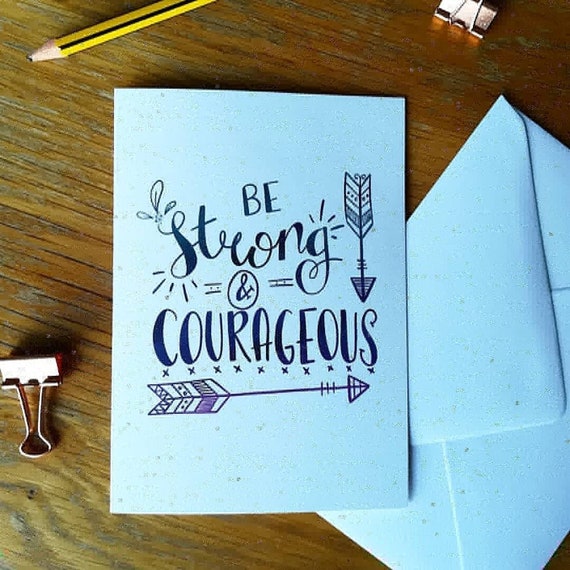 BE
Strong
&
COURAGEOUS